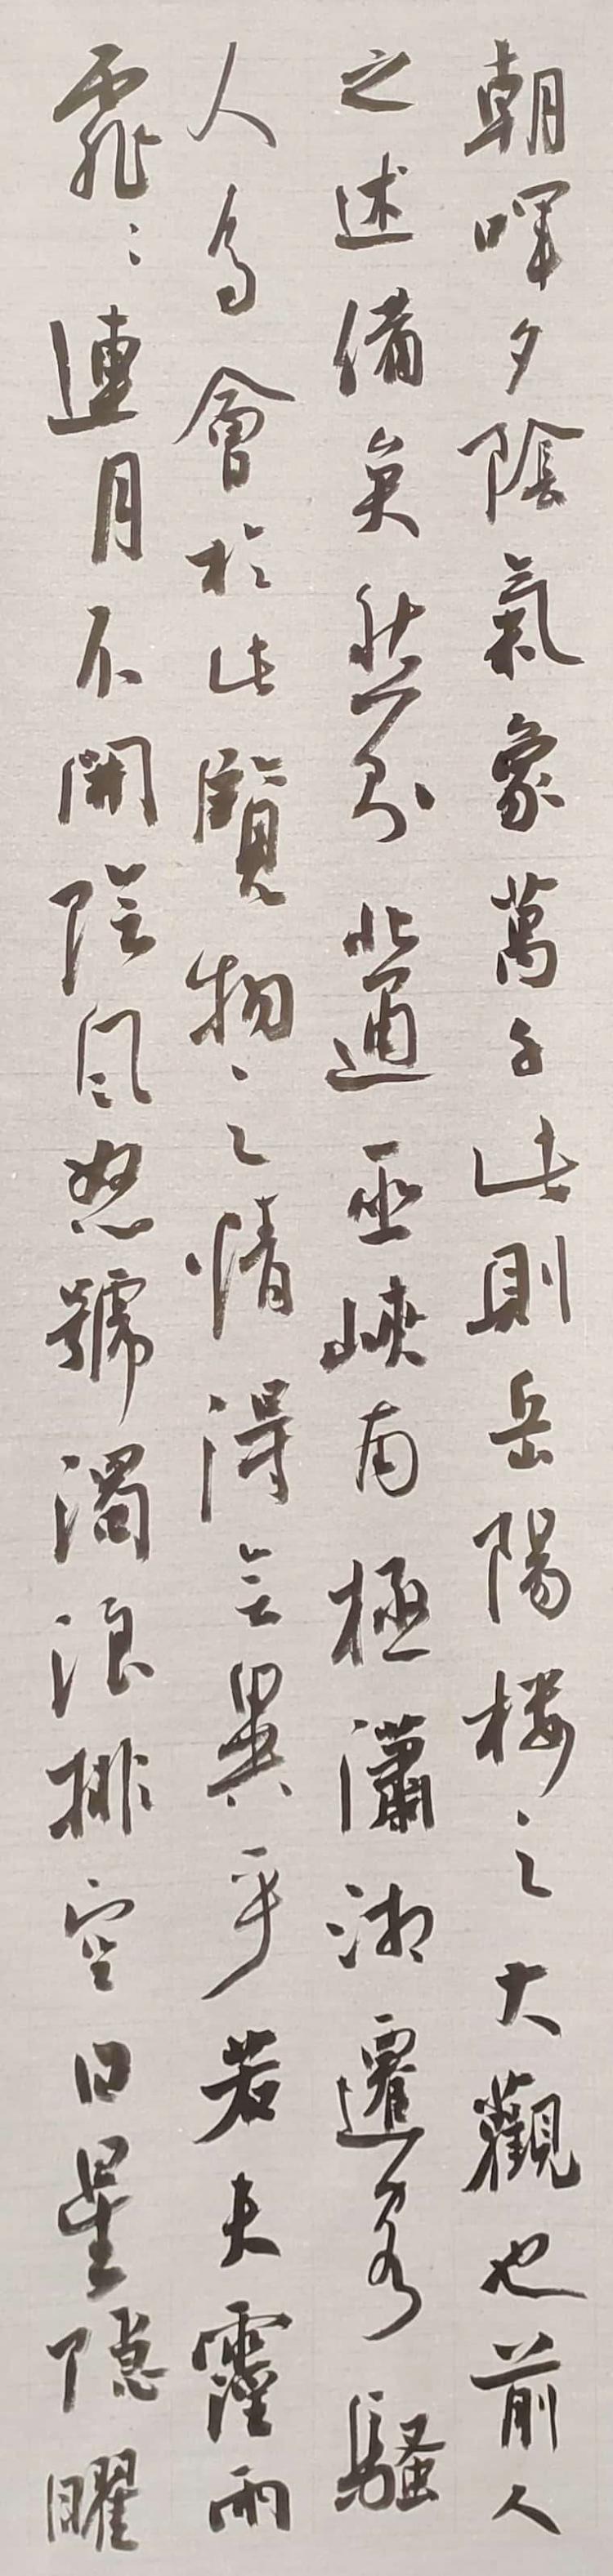 朝暉夕陰氣象萬千此則岳陽樓之大觀也前人
之述備矣然則北通巫峽南極瀟湘遷客騷
人多會於此覽物之情得無異乎若夫霪雨
霏〻連月不開陰風怒號濁浪排空日星隱曜